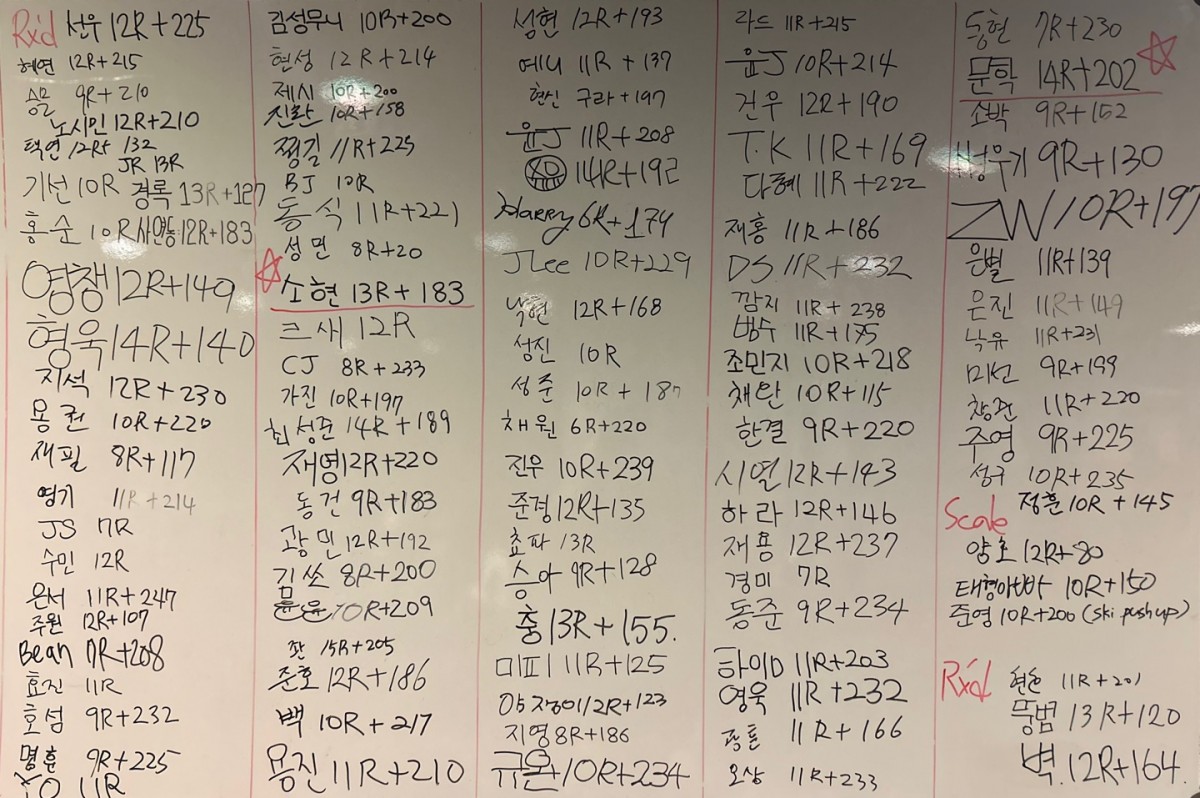 Rx'd 선우 12R+225
혜연 12R+215
승모 9R+210
노시민 12R+210
택연 12R+ 132
JR 13R
기선 10R 경록 13R+127
홍순 10R 사연충 12R+183
영챙 12R+149
형욱 14R+140
지석 12R+230
용권 10R+220
재필 8R+117
영기 11R+214
JS 7R
수민 12R
은서 11R+247
주원 12R+107
Bean 7R+208
효진 11R
호섬 9R+232
명훈 9R+225
11R
김성무니 10R+200
현성 12R+214
제시 10R+200
진환 10R+158
쩡길 11R+225
BJ 10R
동식 11R+221
성면 8R+20
소현 13R+183
르새 12R
CJ 8R+233
가진 10R+197
최성준 14R+189
재영 12R+220
동건 9R+183
광민 12R+192
김쏘 8R+200
10R+209
좟 15R+205
준호 12R+186
백 10R+217
용진 11R+210
성현 12R+193
에니 11R+137
현신 구라+197
윤J 11R+208
14R+192
Harry 6R+174
JLee 10R+229
낙현 12R+168
성진 10R
성준 10R+187
채원 6R+220
진우 10R+239
준경 12R+135
쵸파 13R
승아 9R+128
충 13R+155.
미피 11R+125
야쟁이 12R+123
지영 8R+186
규온 10R+234
라드 11R+215
윤J 10R+214
건우 12R+190
T.K 11R+169
다혜 11R+222
재홍 11R+186
DS 11R+232
깜지 11R+238
병수 11R+175
조민지 10R+218
채탄 10R+115
한결 9R+220
시열 12R+143
하라 12R+146
재용 12R+237
경미 7R
동준 9R+234
하이D 11R+203
영욱 11R+232
광튼 11R+166
오상 11R+233
동현 7R+230
문학 14R+202
소박 9R+152
성우기 9R+130
ZW 10R+197
은별 11R+139
은진 11R+149
낙유 11R+231
미선 9R+199
창준 11R+220
주영 9R+225
성구 10R+235
Scale 정훈 10R+145
양초 12R+80
태형아빠 10R+150
준영 10R+200 (ski push up)
Rx'd 현승 11R+201
뚱법 13R+120
벽. 12R+164